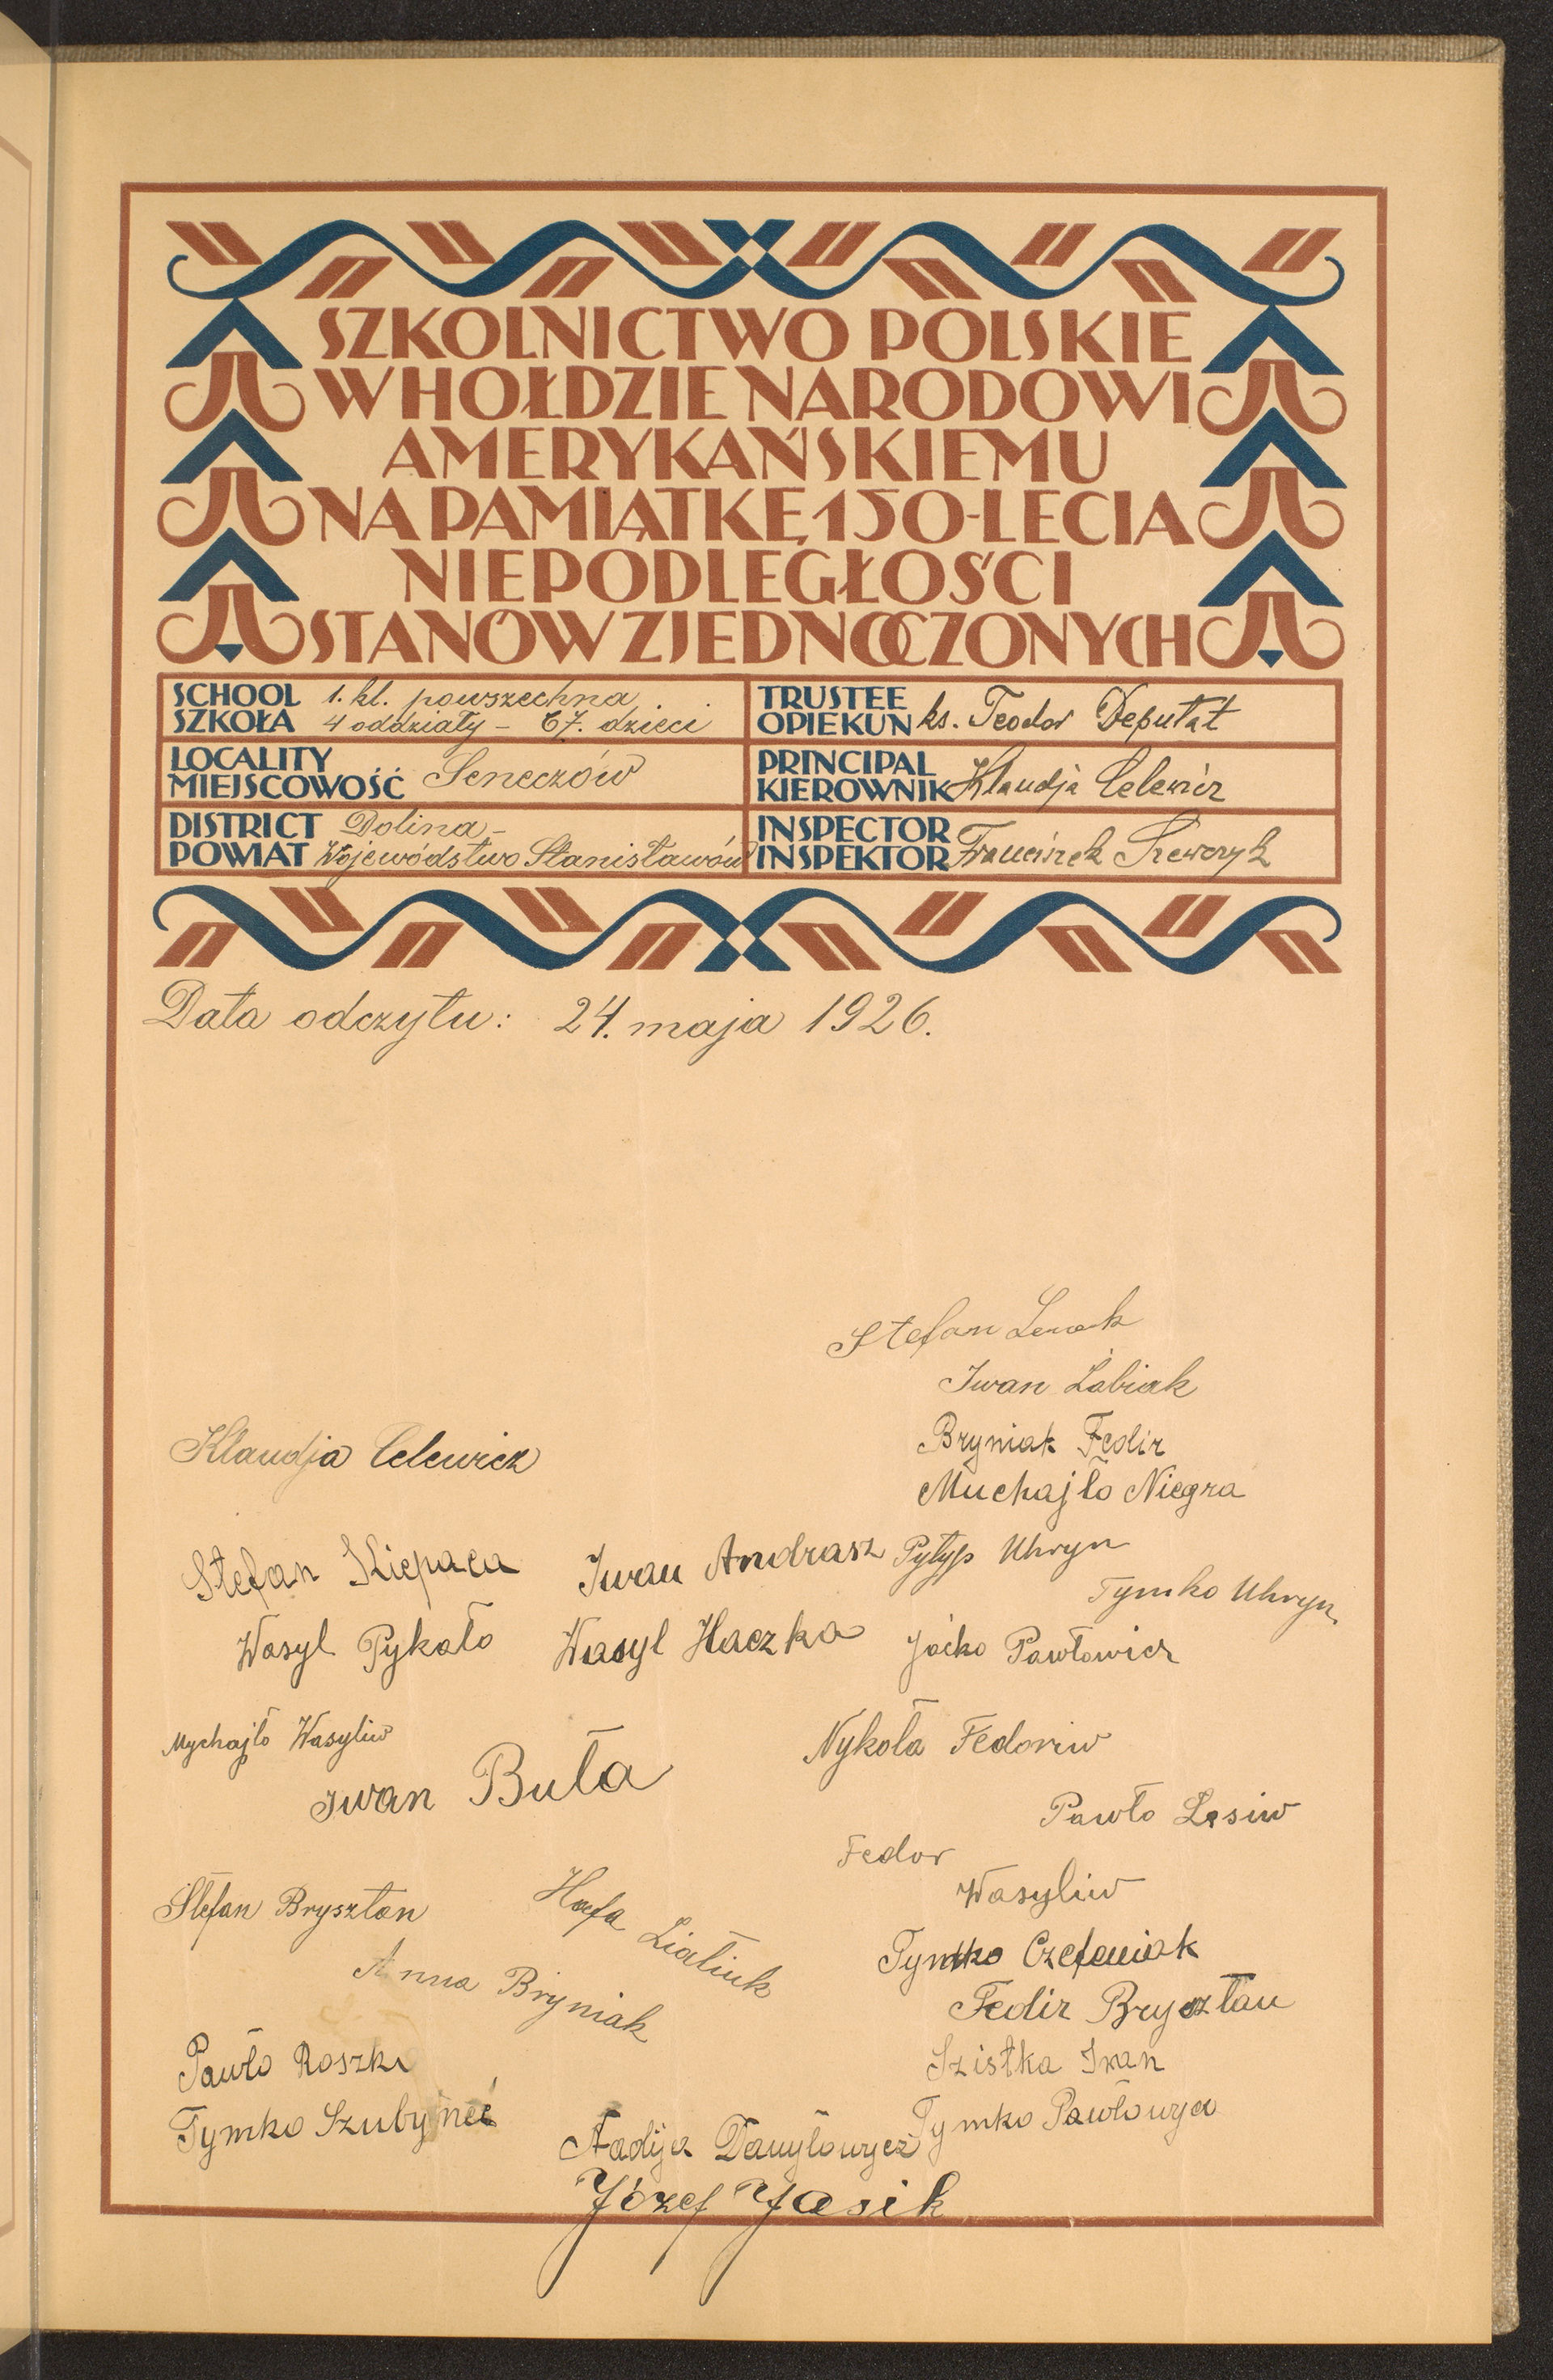 SZKOLNICTWO POLSKIE
W HOŁDZIE NARODOWI
AMERYKAŃSKIEMU
NA PAMIĄTKĘ 150-LECIA
NIEPODLEGŁOŚCI
STANÓW ZJEDNOCZONYCH
SCHOOL
SZKOŁA
1. kl. powszechna
4 oddziały - 67. dzieci
TRUSTEE
OPIEKUN
ks. Teodor Deputat
LOCALITY
MIEJSCOWOŚĆ
Seneczów
PRINCIPAL
KIEROWNIK
Klaudja Celewicz
DISTRICT
POWIAT
Dolina -
Województwo Stanisławów
INSPECTOR
INSPEKTOR
Franciszek Szewczyk
Data odczytu: 24. maja 1926.
Stefan
Iwan Łabiak
Klaudja Celewicz
Bryniak Fedir
Muchajło Niegra
Stefan Kiepaca
Iwan Andrasz
Pyłyp Uhryn
Tymko Uhryn
Wasyl Pykało
Wasyl Haczka
Jacko Pawłowicz
Mychajło Wasyliw
Nykoła Fedoriw
Iwan Buła
Pawło Lesiw
Fedor
Wasyliw
Stefan Brysztan
Hafa Liatiuk
Tymko Czefaniak
Anna Bryniak
Fedir Brysztan
Pawło Roszko
Szistka Iwan
Tymko
Tymko
Nadija Danyłowycz
Józef Jasik